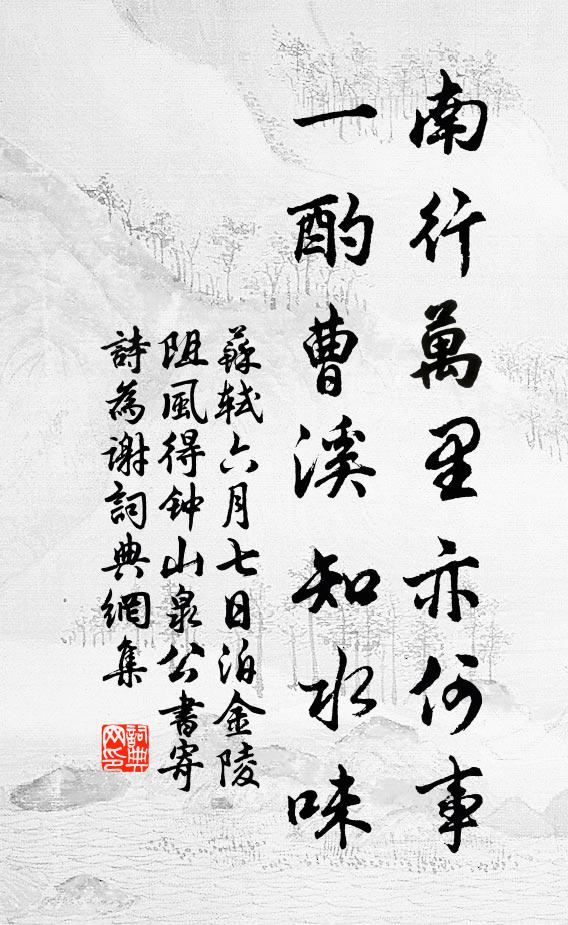 南行萬里亦何事
一酌曹溪知水味
蘇軾六月七日泊金陵
阻風得钟山泉公書寄
詩為谢詞典網集
詞典
网印